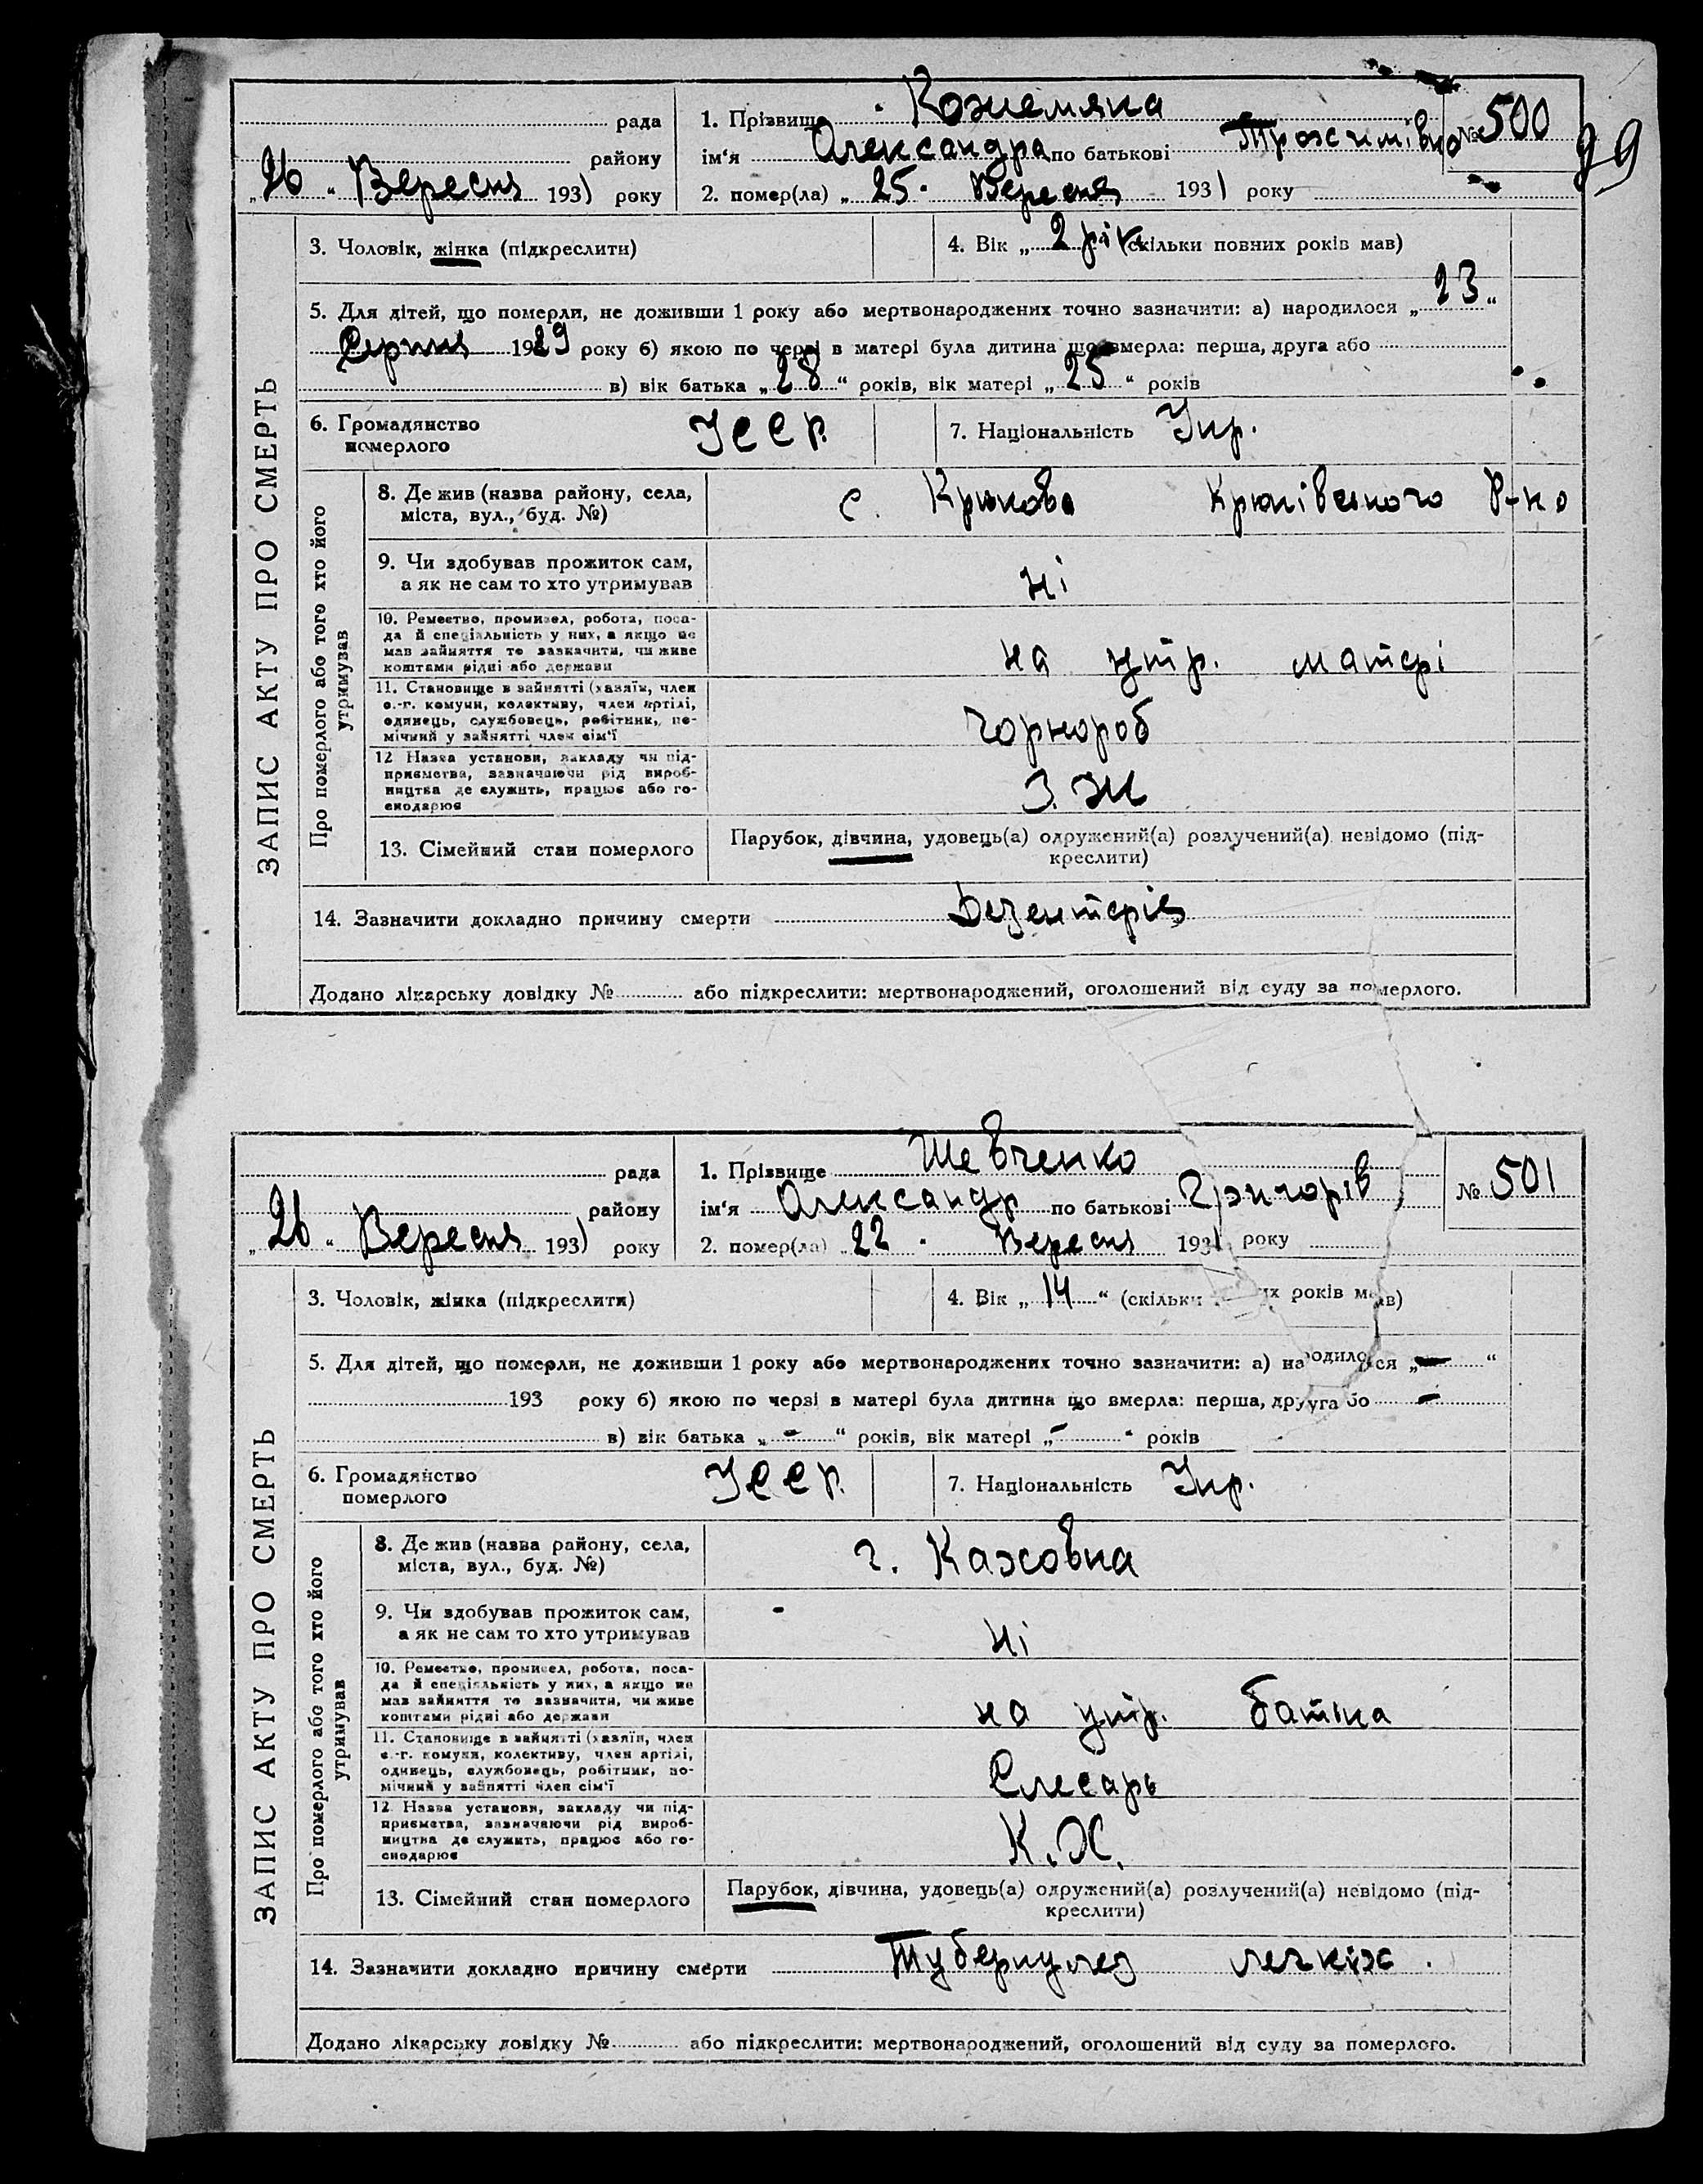 99
рада
району
„26“ Вересня 1931 року
1. Прізвище Кожемяка
ім‘я Олександра по батькові Трохимівна
№ 500
2. помер(ла) „25“ Вересня 1931 року
3. Чоловік, жінка (підкреслити)
4. Вік „2 рік (скільки повних років мав)
5. Для дітей, що померли, не доживши 1 року або мертвонароджених точно зазначити: а) народилося „23“
Серпня 1929 року б) якою по черзі в матері була дитина що вмерла: перша, друга або
в) вік батька „28“ років, вік матері „25“ років
6. Громадянство
померлого
УССР.
7. Національність Укр.
ЗАПИС АКТУ ПРО СМЕРТЬ
Про померлого або того хто його
утримував
8. Де жив (назва району, села,
міста, вул., буд. №)
с. Крюково Крюківського Р-но
9. Чи здобував прожиток сам,
а як не сам то хто утримував
ні
10. Ремество, промисел, робота, поса-
да й спеціальність у них, а якщо не
мав зайняття то зазначити, чи живе
коштами рідні або держави
на утр. матері
11. Становище в зайнятті (хазяїн, член
с.-г. комуни, колективу, член артілі,
одинець, службовець, робітник, по-
мічний у зайнятті член сім‘ї
чорнороб
12 Назва установи, закладу чи під-
приємства, зазначаючи рід вироб-
ництва де служить, працює або го-
сподарює
13. Сімейний стан померлого
Парубок, дівчина, удовець(а) одружений(а) розлучений(а) невідомо (під-
креслити)
14. Зазначити докладно причину смерти Дезентерія
Додано лікарську довідку № або підкреслити: мертвонароджений, оголошений від суду за померлого.
рада
району
„26“ Вересня 1931 року
1. Прізвище Шевченко
ім‘я Олександр по батькові Григорів
№ 501
2. помер(ла) „22“ Вересня 1931 року
3. Чоловік, жінка (підкреслити)
4. Вік „14“ (скільки их років мав)
5. Для дітей, що померли, не доживши 1 року або мертвонароджених точно зазначити: а) народилося „-“
193 року б) якою по черзі в матері була дитина що вмерла: перша, друга бо -
в) вік батька „-“ років, вік матері „-“ років
6. Громадянство
померлого
УССР.
7. Національність Укр.
ЗАПИС АКТУ ПРО СМЕРТЬ
Про померлого або того хто його
утримував
8. Де жив (назва району, села,
міста, вул., буд. №)
г. Каховка
9. Чи здобував прожиток сам,
а як не сам то хто утримував
ні
10. Ремество, промисел, робота, поса-
да й спеціальність у них, а якщо не
мав зайняття то зазначити, чи живе
коштами рідні або держави
на утр. батька
11. Становище в зайнятті (хазяїн, член
с.-г. комуни, колективу, член артілі,
одинець, службовець, робітник, по-
мічний у зайнятті член сім‘ї
Слесарь
12 Назва установи, закладу чи під-
приємства, зазначаючи рід вироб-
ництва де служить, працює або го-
сподарює
К. Х.
13. Сімейний стан померлого
Парубок, дівчина, удовець(а) одружений(а) розлучений(а) невідомо (під-
креслити)
14. Зазначити докладно причину смерти Туберкулез легких.
Додано лікарську довідку № або підкреслити: мертвонароджений, оголошений від суду за померлого.